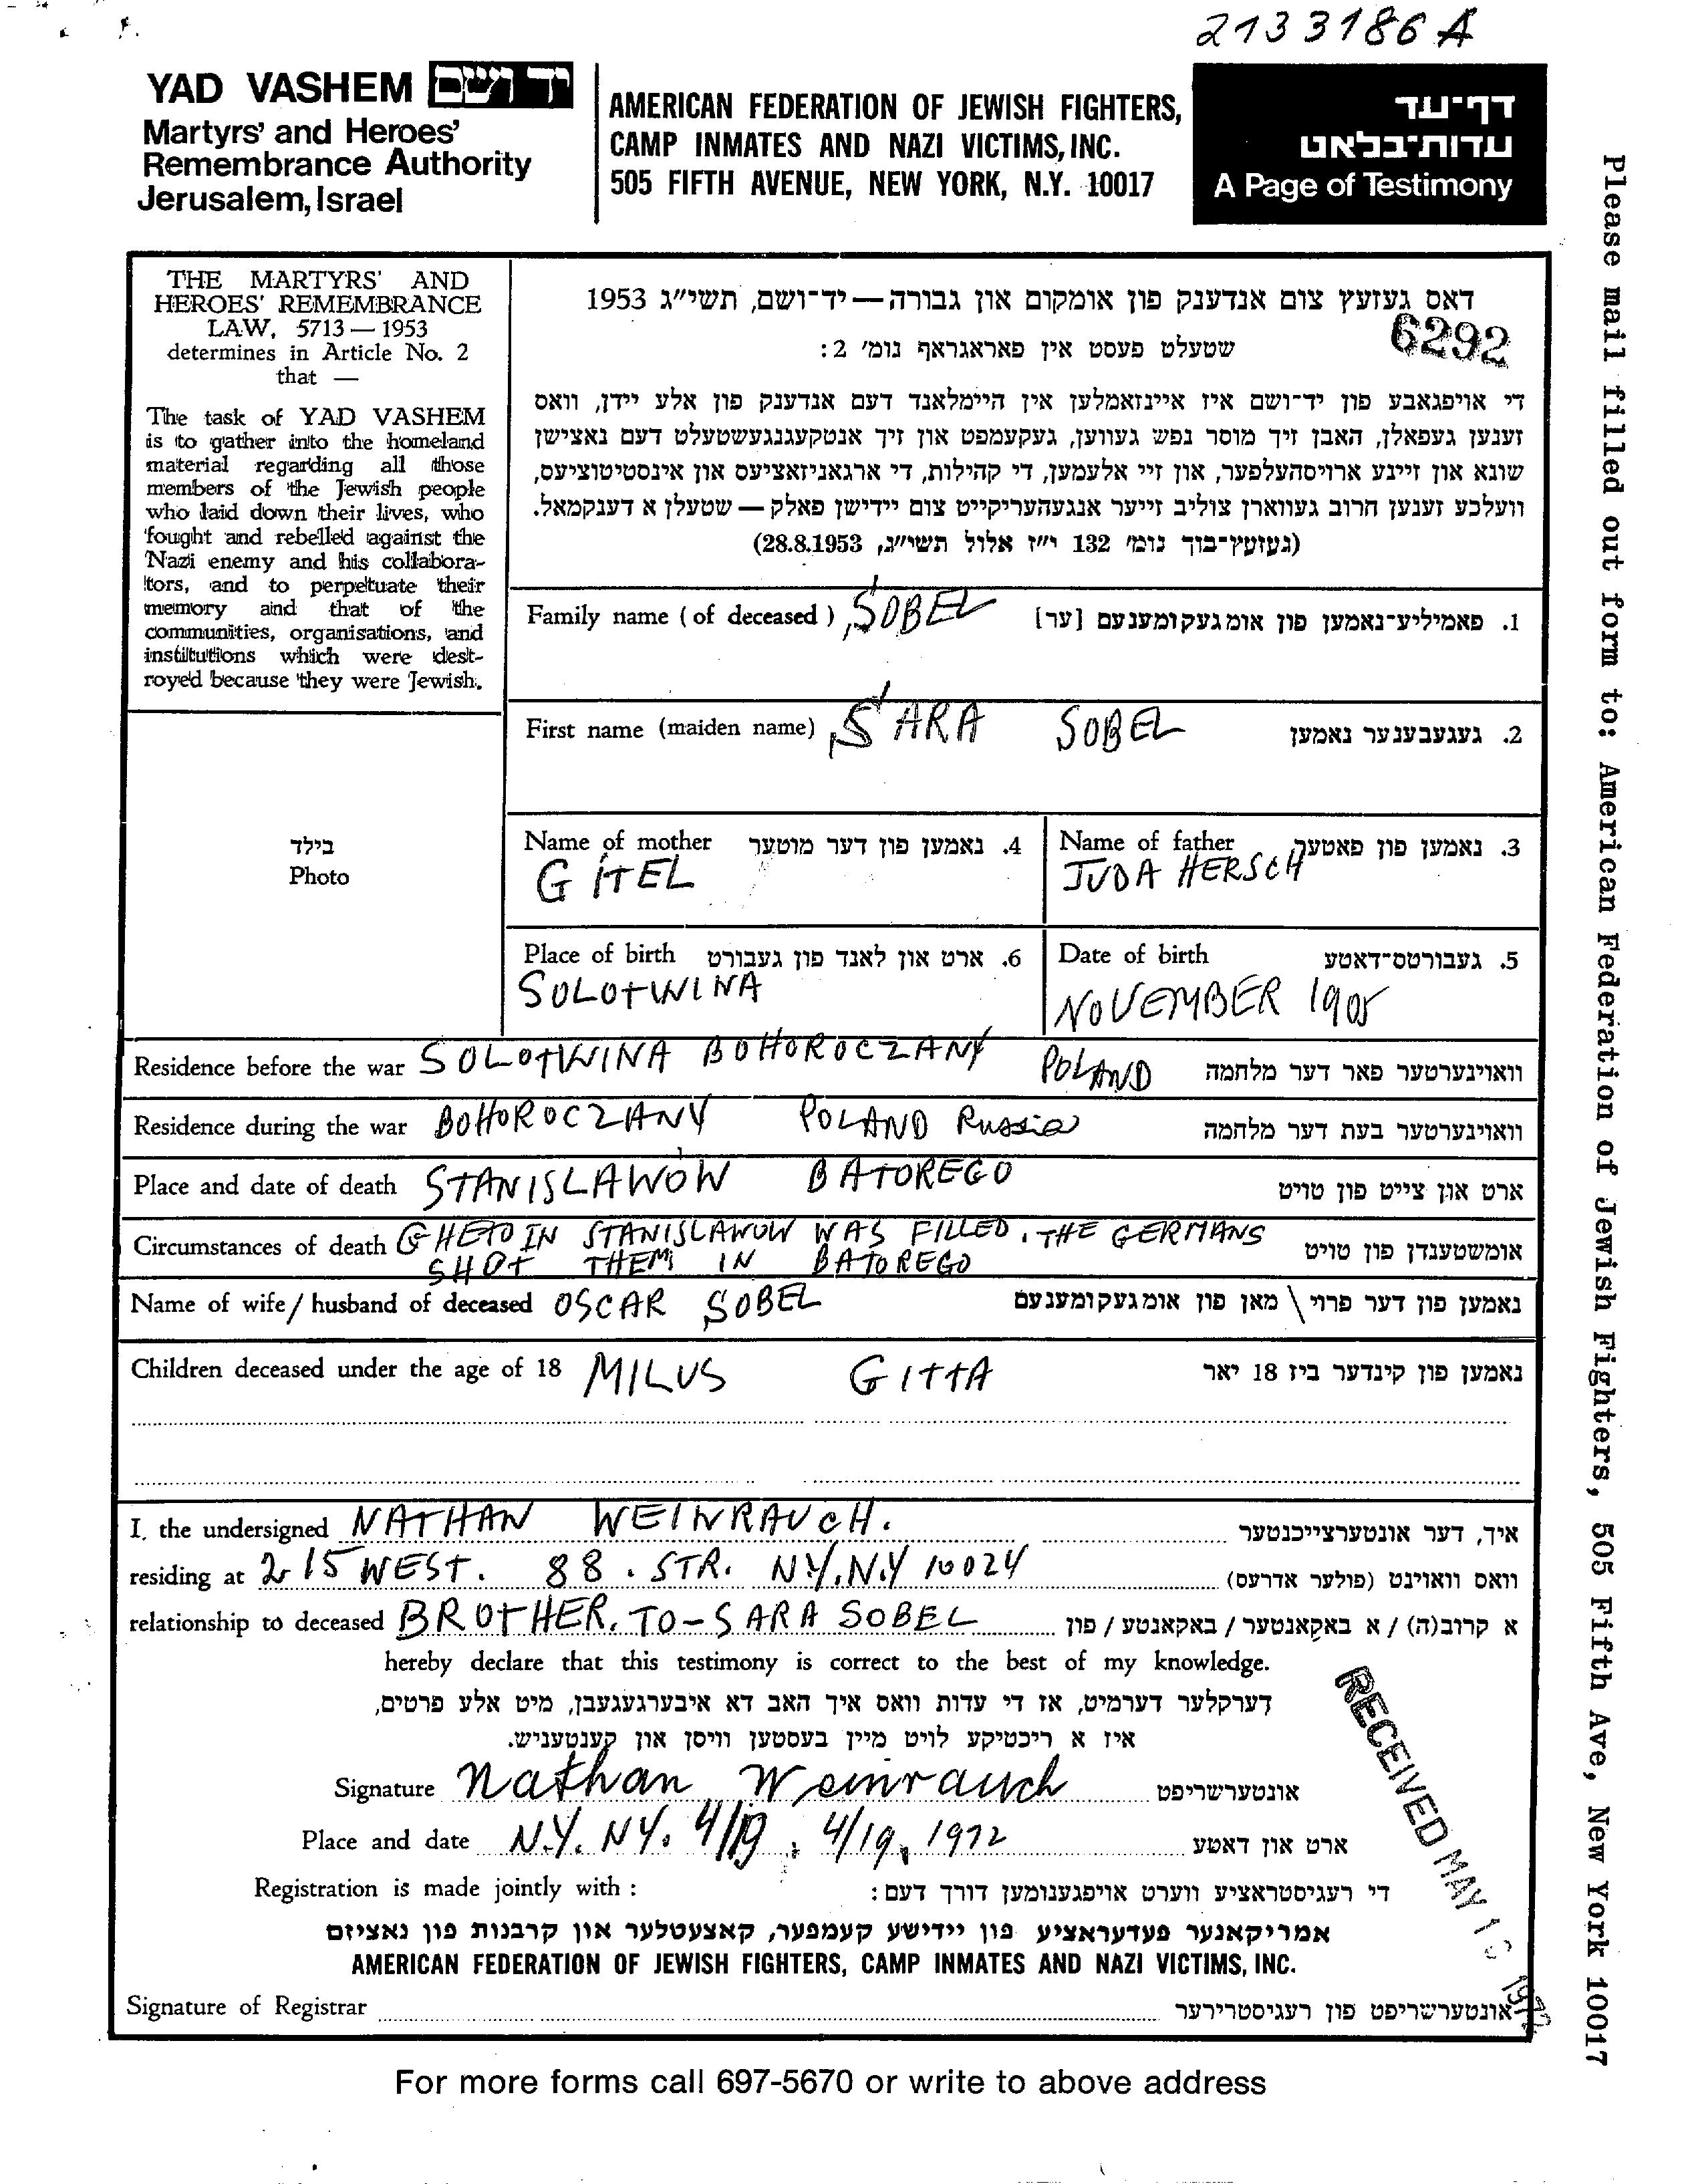 2133186 A
YAD VASHEM יד ושם
Martyrs' and Heroes'
Remembrance Authority
Jerusalem, Israel
AMERICAN FEDERATION OF JEWISH FIGHTERS,
CAMP INMATES AND NAZI VICTIMS, INC.
505 FIFTH AVENUE, NEW YORK, N.Y. 10017
דף־עד
עדות־בלאט
A Page of Testimony
THE MARTYRS' AND
HEROES' REMEMBRANCE
LAW, 5713 — 1953
determines in Article No. 2
that —
The task of YAD VASHEM
is to gather into the homeland
material regarding all those
members of the Jewish people
who laid down their lives, who
fought and rebelled against the
Nazi enemy and his collabora-
tors, and to perpetuate their
memory and that of the
communities, organisations, and
institutions which were dest-
royed because they were Jewish.
דאס געזעץ צום אנדענק פון אומקום און גבורה — יד־ושם, תשי"ג 1953
6292
שטעלט פעסט אין פאראגראף נומ' 2:
די אויפגאבע פון יד־ושם איז איינזאמלען אין היימלאנד דעם אנדענק פון אלע יידן, וואס
זענען געפאלן, האבן זיך מוסר נפש געווען, געקעמפט און זיך אנטקעגנגעשטעלט דעם נאצישן
שונא און זיינע ארויסהעלפער, און זיי אלעמען, די קהילות, די ארגאניזאציעס און אינסטיטוציעס,
וועלכע זענען חרוב געווארן צוליב זייער אנגעהעריקייט צום יידישן פאלק — שטעלן א דענקמאל.
(געזעץ־בוך נומ' 132 י"ז אלול תשי"ג, 28.8.1953)
Family name (of deceased) SOBEL 1. פאמיליע־נאמען פון אומגעקומענעם [ער]
First name (maiden name) SARA SOBEL 2. געגעבענער נאמען
בילד
Photo
Name of mother 4. נאמען פון דער מוטער
GITEL
Name of father 3. נאמען פון פאטער
JUDA HERSCH
Place of birth 6. ארט און לאנד פון געבורט
SOLOTWINA
Date of birth 5. געבורטס־דאטע
NOVEMBER 1905
Residence before the war SOLOTWINA BOHOROCZANY POLAND וואוינערטער פאר דער מלחמה
Residence during the war BOHOROCZANY POLAND Russia וואוינערטער בעת דער מלחמה
Place and date of death STANISLAWOW BATOREGO ארט און צייט פון טויט
Circumstances of death GHETO IN STANISLAWOW WAS FILLED. THE GERMANS אומשטענדן פון טויט
SHOT THEM IN BATOREGO
Name of wife / husband of deceased OSCAR SOBEL נאמען פון דער פרוי \ מאן פון אומגעקומענעם
Children deceased under the age of 18 MILUS GITTA נאמען פון קינדער ביז 18 יאר
I, the undersigned NATHAN WEINRAUCH. איך, דער אונטערצייכנטער
residing at 215 WEST. 88. STR. NY, N.Y 10024 וואס וואוינט (פולער אדרעס)
relationship to deceased BROTHER. TO - SARA SOBEL א קרוב(ה) / א באקאנטער / באקאנטע / פון
hereby declare that this testimony is correct to the best of my knowledge.
דערקלער דערמיט, אז די עדות וואס איך האב דא איבערגעגעבן, מיט אלע פרטים,
איז א ריכטיקע לויט מיין בעסטען וויסן און קענטעניש.
Signature Nathan Weinrauch אונטערשריפט
Place and date N.Y. NY. 4/19, 4/19, 1972 ארט און דאטע
RECEIVED MAY 1 1972
Registration is made jointly with : די רעגיסטראציע ווערט אויפגענומען דורך דעם:
אמריקאנער פעדעראציע פון יידישע קעמפער, קאצעטלער און קרבנות פון נאציזם
AMERICAN FEDERATION OF JEWISH FIGHTERS, CAMP INMATES AND NAZI VICTIMS, INC.
Signature of Registrar אונטערשריפט פון רעגיסטרירער
For more forms call 697-5670 or write to above address
Please mail filled out form to: American Federation of Jewish Fighters, 505 Fifth Ave, New York 10017